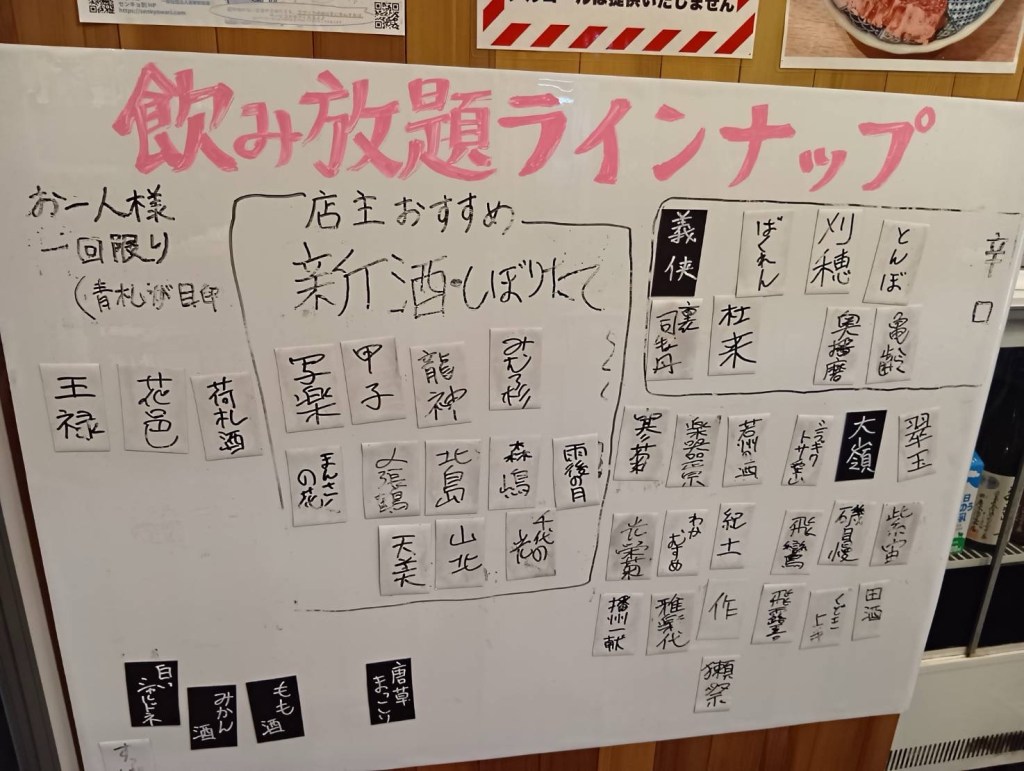 アルコールは提供いたしません
飲み放題ラインナップ
お一人様
一回限り
(青札が目印
店主おすすめ
新酒・しぼりたて
王禄
花邑
荷札酒
写楽
甲子
龍神
みむろ杉
まんさく
の花
北島
森嶋
雨後の月
天美
山北
千代の
光
辛
口
義侠
ばくれん
刈穂
とんぼ
裏
司牡丹
杜来
奥播磨
亀齢
寒菊
楽器正宗
大嶺
翠玉
光栄菊
わか
むすめ
紀土
飛鸞
磯自慢
紫宙
播州一献
雅楽代
作
飛露喜
くどき
上手
田酒
獺祭
白い
シャルドネ
みかん
酒
もも
酒
唐草
まっこり